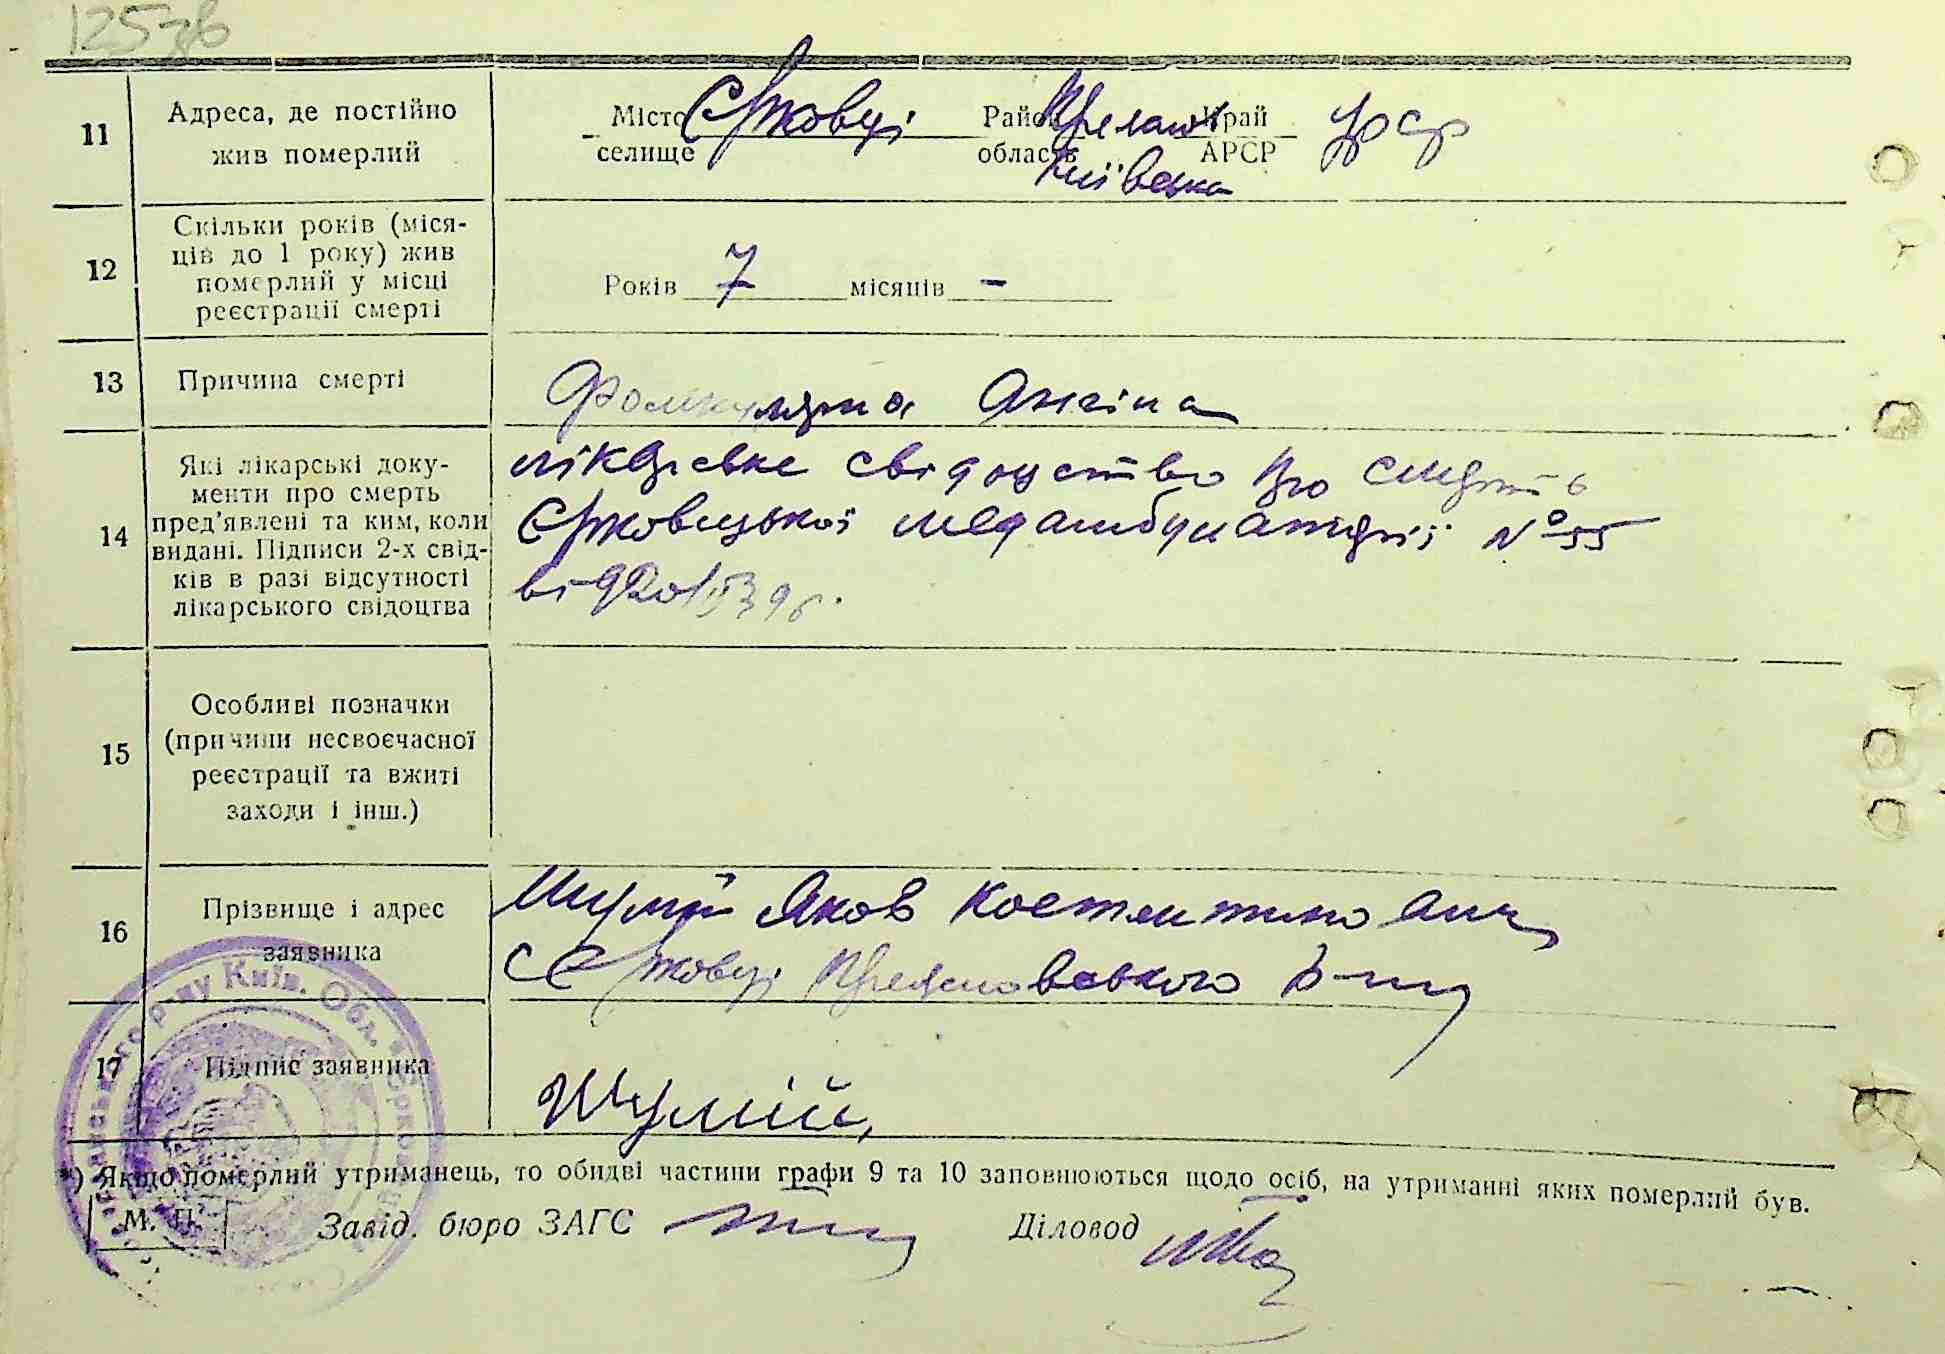 125зв
11
Адреса, де постійно
жив померлий
Місто
селище
Єрковці
Район
область
Київська
Край
АРСР
УРСР
12
Скільки років (міся-
ців до 1 року) жив
померлий у місці
реєстрації смерті
Років 7 місяців -
13
Причина смерті
Фолікулярна Ангіна
14
Які лікарські доку-
менти про смерть
пред'явлені та ким, коли
видані. Підписи 2-х свід-
ків в разі відсутності
лікарського свідоцтва
лікарське свідоцтво про смерть
Єрковецької медамбулаторії № 55
від
15
Особливі позначки
(причини несвоєчасної
реєстрації та вжиті
заходи і інш.)
16
Прізвище і адрес
заявника
Шулій Яков Костянтинович
с Єрковці Переяславського р-ну
17
Підпис заявника
Шулій
*) Якщо померлий утриманець, то обидві частини графи 9 та 10 заповнюються щодо осіб, на утриманні яких померлий був.
М. П.
Завід. бюро ЗАГС
Діловод
р-ну Київ. Обл.